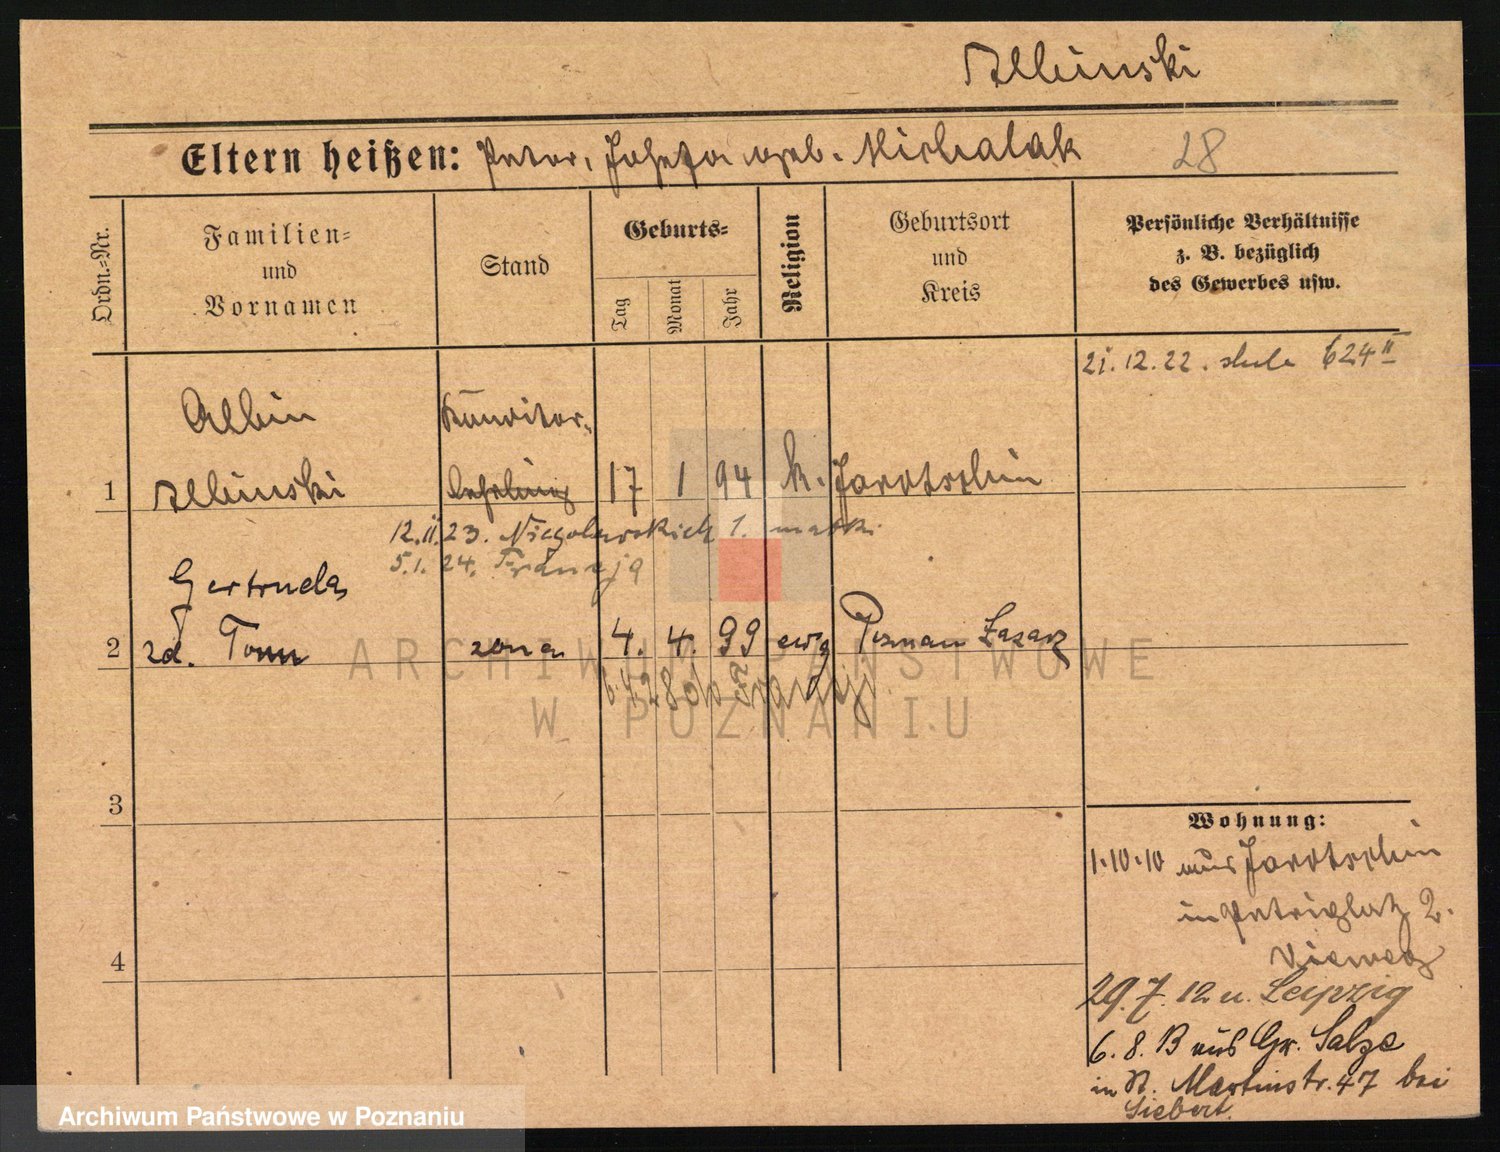 Albinski
Eltern heißen: Peter, Josefa geb. Michalak 28
Ordn.=Nr.
Familien=
und
Vornamen
Stand
Geburts=
Tag
Monat
Jahr
Religion
Geburtsort
und
Kreis
Persönliche Verhältnisse
z. B. bezüglich
des Gewerbes usw.
21.12.22. 624 II
Albin Konditor-
1 Albinski lehrling 17 1 94 k. Jarotschin
12.II.23. Niegolewskich 1.
5.1.24. Francja
Gertruda
2 zd. Tonn żona 4. 4. 99 ewg Poznan Łazarz
3
Wohnung:
1.10.10 aus Jarotschin
in Petriplatz 2.
4
29.7.12 n. Leipzig
6.8.13 aus Gr. Salze
in St. Martinstr. 47 bei
Siebert.
ARCHIWUM PAŃSTWOWE
W POZNANIU
Archiwum Państwowe w Poznaniu